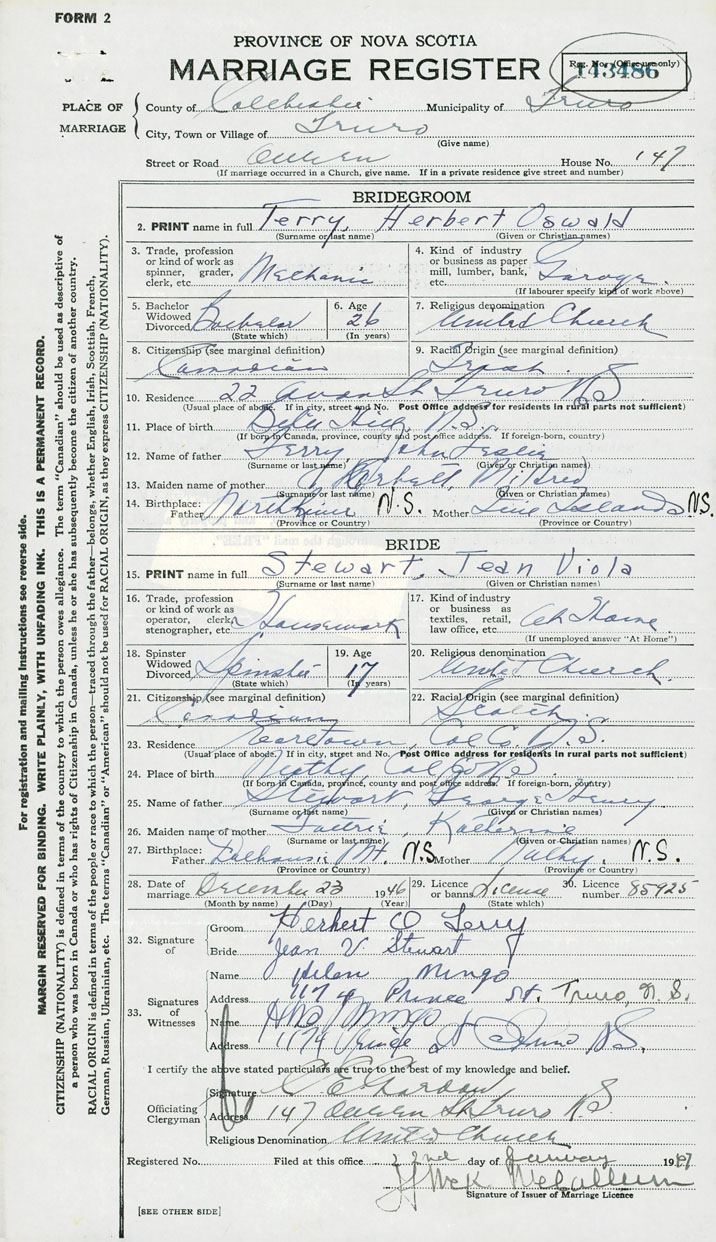 FORM 2
PROVINCE OF NOVA SCOTIA
MARRIAGE REGISTER
Reg. No. (Office use only)
143486
PLACE OF MARRIAGE
County of Colchester Municipality of Truro
City, Town or Village of Truro
(Give name)
Street or Road Queen House No. 147
(If marriage occurred in a Church, give name. If in a private residence give street and number)
BRIDEGROOM
2. PRINT name in full Terry, Herbert Oswald
(Surname or last name) (Given or Christian names)
3. Trade, profession or kind of work as spinner, grader, clerk, etc. Mechanic
4. Kind of industry or business as paper mill, lumber, bank, etc. Garage
(If labourer specify kind of work above)
5. Bachelor Widowed Divorced Bachelor
(State which)
6. Age 26
(In years)
7. Religious denomination United Church
8. Citizenship (see marginal definition) Canadian
9. Racial Origin (see marginal definition) Irish
10. Residence 22 St Truro N.S
(Usual place of abode. If in city, street and No. Post Office address for residents in rural parts not sufficient)
11. Place of birth N.S.
(If born in Canada, province, county and post office address. If foreign-born, country)
12. Name of father Terry, John Leslie
(Surname or last name) (Given or Christian names)
13. Maiden name of mother Mildred
(Surname or last name) (Given or Christian names)
14. Birthplace: Father N.S. Mother Islands N.S.
(Province or Country) (Province or Country)
BRIDE
15. PRINT name in full Stewart, Jean Viola
(Surname or last name) (Given or Christian names)
16. Trade, profession or kind of work as operator, clerk, stenographer, etc. Housework
17. Kind of industry or business as textiles, retail, law office, etc. At Home
(If unemployed answer "At Home")
18. Spinster Widowed Divorced Spinster
(State which)
19. Age 17
(In years)
20. Religious denomination United Church
21. Citizenship (see marginal definition) Canadian
22. Racial Origin (see marginal definition) Scotch
23. Residence Col Co N.S.
(Usual place of abode. If in city, street and No. Post Office address for residents in rural parts not sufficient)
24. Place of birth Col Co N.S.
(If born in Canada, province, county and post office address. If foreign-born, country)
25. Name of father Stewart, George Henry
(Surname or last name) (Given or Christian names)
26. Maiden name of mother Katherine
(Surname or last name) (Given or Christian names)
27. Birthplace: Father Dalhousie Mt. N.S. Mother N.S.
(Province or Country) (Province or Country)
28. Date of marriage December 23 1946
(Month by name) (Day) (Year)
29. Licence or banns License
(State which)
30. Licence number 85925
32. Signature of
Groom Herbert O Terry
Bride Jean V Stewart
33. Signatures of Witnesses
Name Helen Mingo
Address Prince St. Truro, N.S.
Name Mingo
Address Prince St Truro N.S.
I certify the above stated particulars are true to the best of my knowledge and belief.
Officiating Clergyman
Signature
Address 147 Queen St Truro N.S
Religious Denomination United Church
Registered No. Filed at this office 22nd day of January 1947
Signature of Issuer of Marriage Licence
[SEE OTHER SIDE]
For registration and mailing instructions see reverse side.
MARGIN RESERVED FOR BINDING. WRITE PLAINLY, WITH UNFADING INK. THIS IS A PERMANENT RECORD.
CITIZENSHIP (NATIONALITY) is defined in terms of the country to which the person owes allegiance. The term "Canadian" should be used as descriptive of
a person who was born in Canada or who has rights of Citizenship in Canada, unless he or she has subsequently become the citizen of another country.
RACIAL ORIGIN is defined in terms of the people or race to which the person—traced through the father—belongs, whether English, Irish, Scottish, French,
German, Russian, Ukrainian, etc. The terms "Canadian" or "American" should not be used for RACIAL ORIGIN, as they express CITIZENSHIP (NATIONALITY).